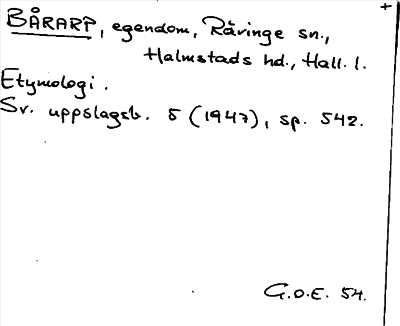 +
BÅRARP, egendom, Råringe sn.,
Halmstads hd., Hall. l.
Etymologi.
Sv. uppslagsb. 5 (1947), sp. 542.
G.O.E. 54.